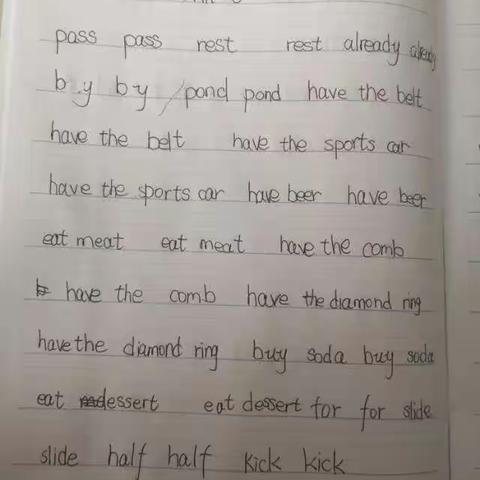 pass pass rest rest already already
by by pond pond have the belt
have the belt have the sports car
have the sports car have beer have beer
eat meat eat meat have the comb
have the comb have the diamond ring
have the diamond ring buy soda buy soda
eat dessert eat dessert for for slide
slide half half kick kick